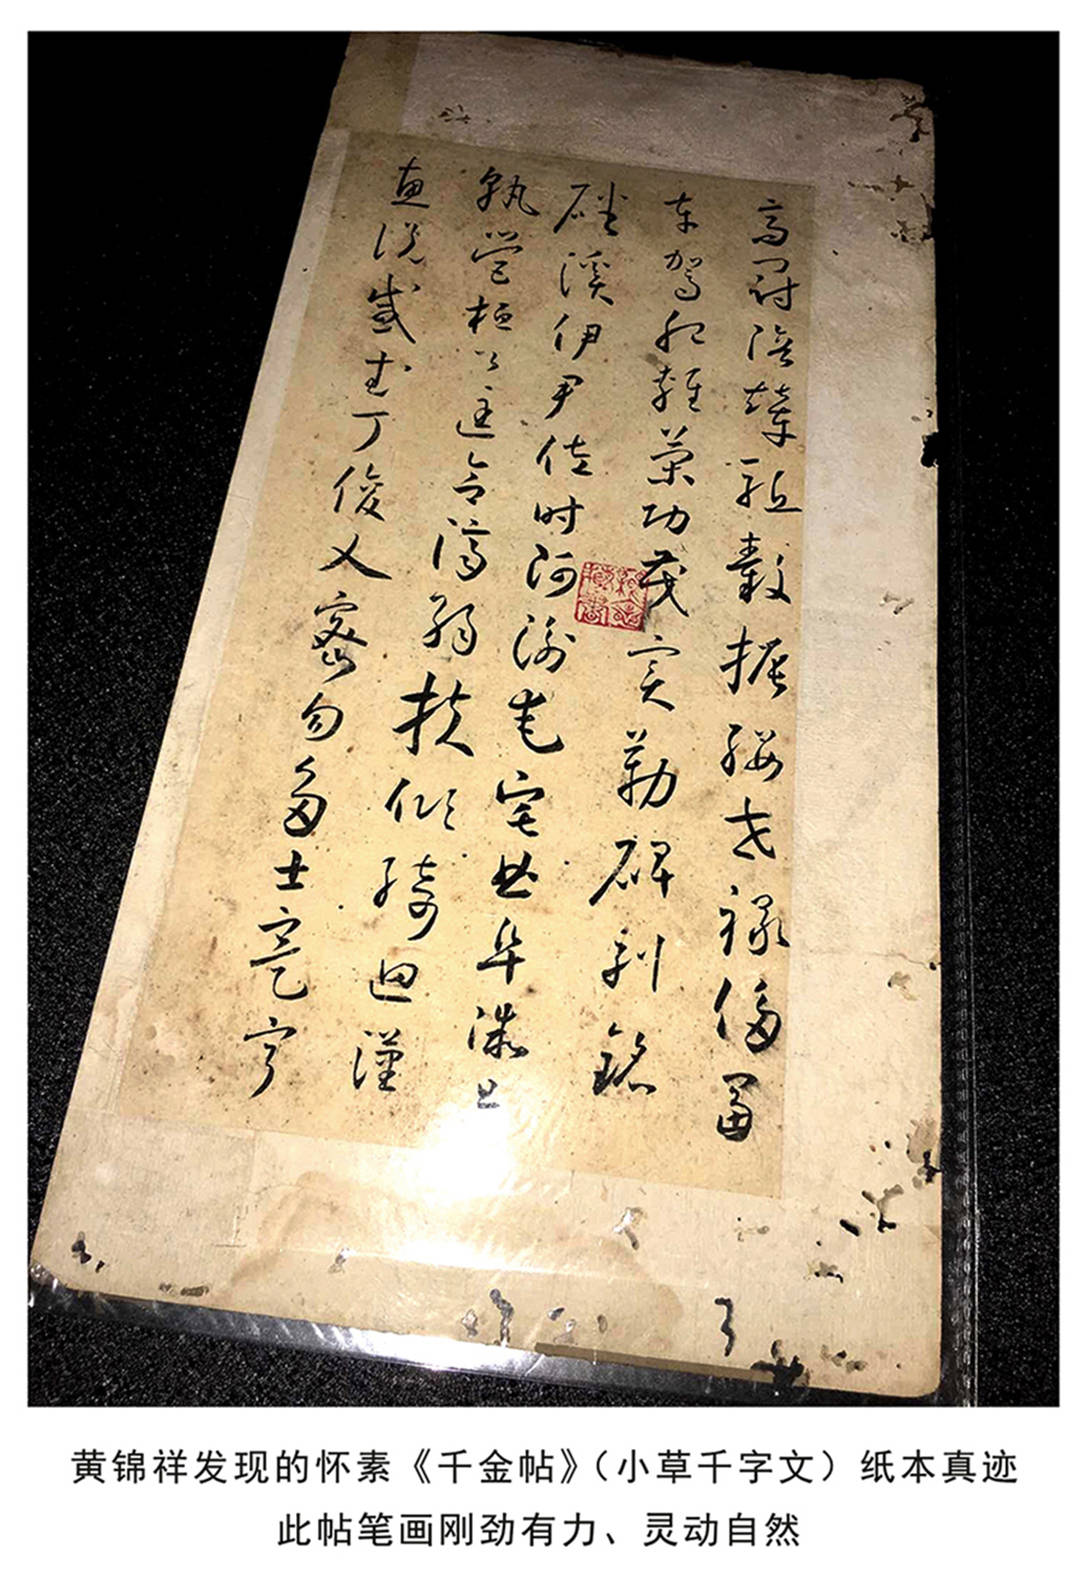 高冠陪輦驅轂振纓世祿侈富
車駕肥輕策功茂實勒碑刻銘
磻溪伊尹佐時阿衡奄宅曲阜微旦
孰營桓公匡合濟弱扶傾綺迴漢
惠說感武丁俊乂密勿多士寔寧
黄锦祥发现的怀素《千金帖》（小草千字文）纸本真迹
此帖笔画刚劲有力、灵动自然